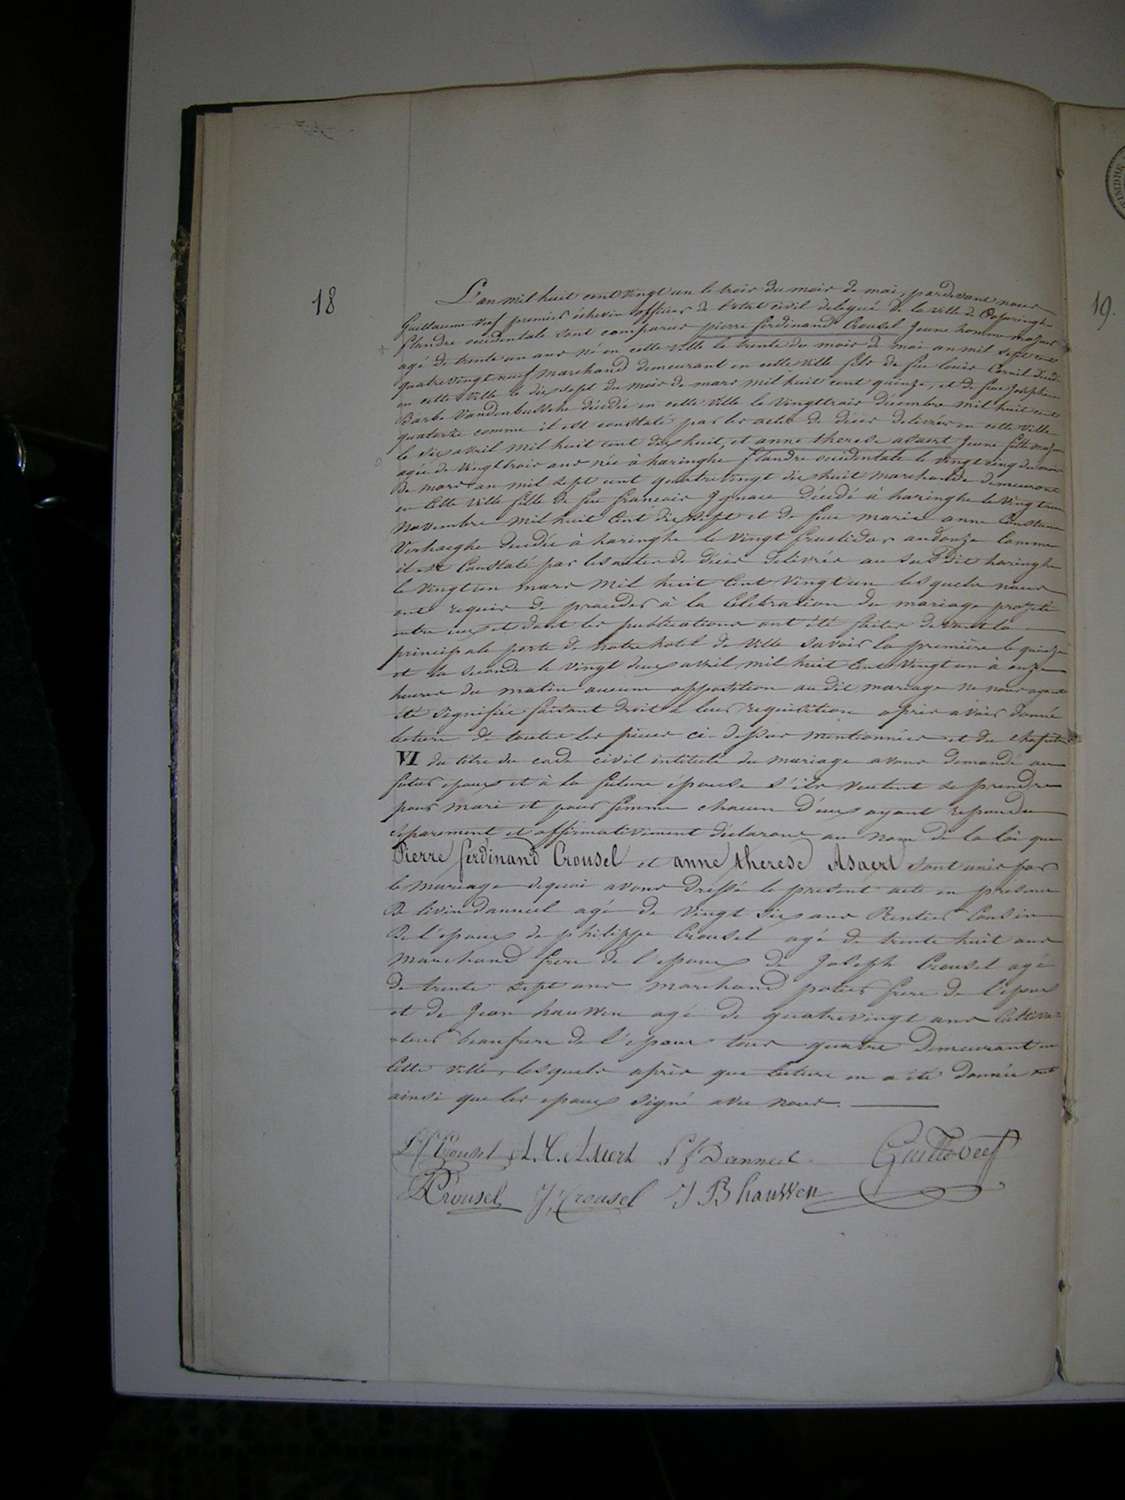 18
L'an mil huit cent vingt un le trois du mois de mai, pardevant nous
Guillaume Veef premier échevin officier de l'état civil delegué de la ville de Poperinghe
flandre occidentale sont comparus pierre ferdinand Crousel jeune homme majeur
agé de trente un ans né en cette ville le trente du mois de mai an mil sept cent
quatrevingt neuf marchand demeurant en cette ville fils de feu louis Cornil décédé
en cette ville le dix sept du mois de mars mil huit cent quinze, et de feue Josephine
Barbe Vandenbussche décédée en cette ville le vingt trois décembre mil huit cent
quatorze comme il est constaté par les actes de décès délivrés en cette ville
le six avril mil huit cent dix huit, et anne therese asaert jeune fille majeure
agée de vingt trois ans née à haringhe flandre occidentale le vingt cinq du mois
de mars an mil sept cent quatrevingt dix huit marchande demeurant
en cette ville fille de feu francois Ignace décédé à haringhe le vingt un
Novembre mil huit cent dix sept et de feue marie anne Constance
Verhaeghe decédée à haringhe le vingt fructidor an douze comme
il est constaté par les actes de décès délivrés au susdit haringhe
le vingt un mars mil huit cent vingt un lesquels nous
ont requis de proceder à la célébration du mariage projeté
entre eux et dont les publications ont été faites devant la
principale porte de notre hotel de ville savoir la première le quinze
et la seconde le vingt deux avril mil huit cent vingt un à onze
heures du matin aucune opposition audit mariage ne nous ayant
été signifiée faisant droit à leur requisition après avoir donné
lecture de toutes les pieces ci-dessus mentionnées et du chapitre
VI du titre du code civil intitulé du mariage avons demandé au
futur epoux et à la future épouse s'ils veulent se prendre
pour mari et pour femme chacun d'eux ayant repondu
séparement et affirmativement déclarons au nom de la loi que
Pierre ferdinand Crousel et anne therese Asaert sont unis par
le mariage dequoi avons dressé le présent acte en presence
De livin danneel agé de vingt six ans Rentier Cousin
De l'epoux de philippe Crousel agé de trente huit ans
marchand frere de l'epoux de Joseph Crousel agé
de trente sept ans marchand potier frere de l'epoux
et de Jean hauwen agé de quatrevingt ans Cultiva-
-teur beaufrere de l'epoux tous quatre demeurant en
cette ville, lesquels après que lecture en a été donnée ont
ainsi que les epoux signé avec nous.
Crousel A.T. Asaert Danneel Guill Veef
P Crousel J Crousel J B hauwen
19.
TIMBRE